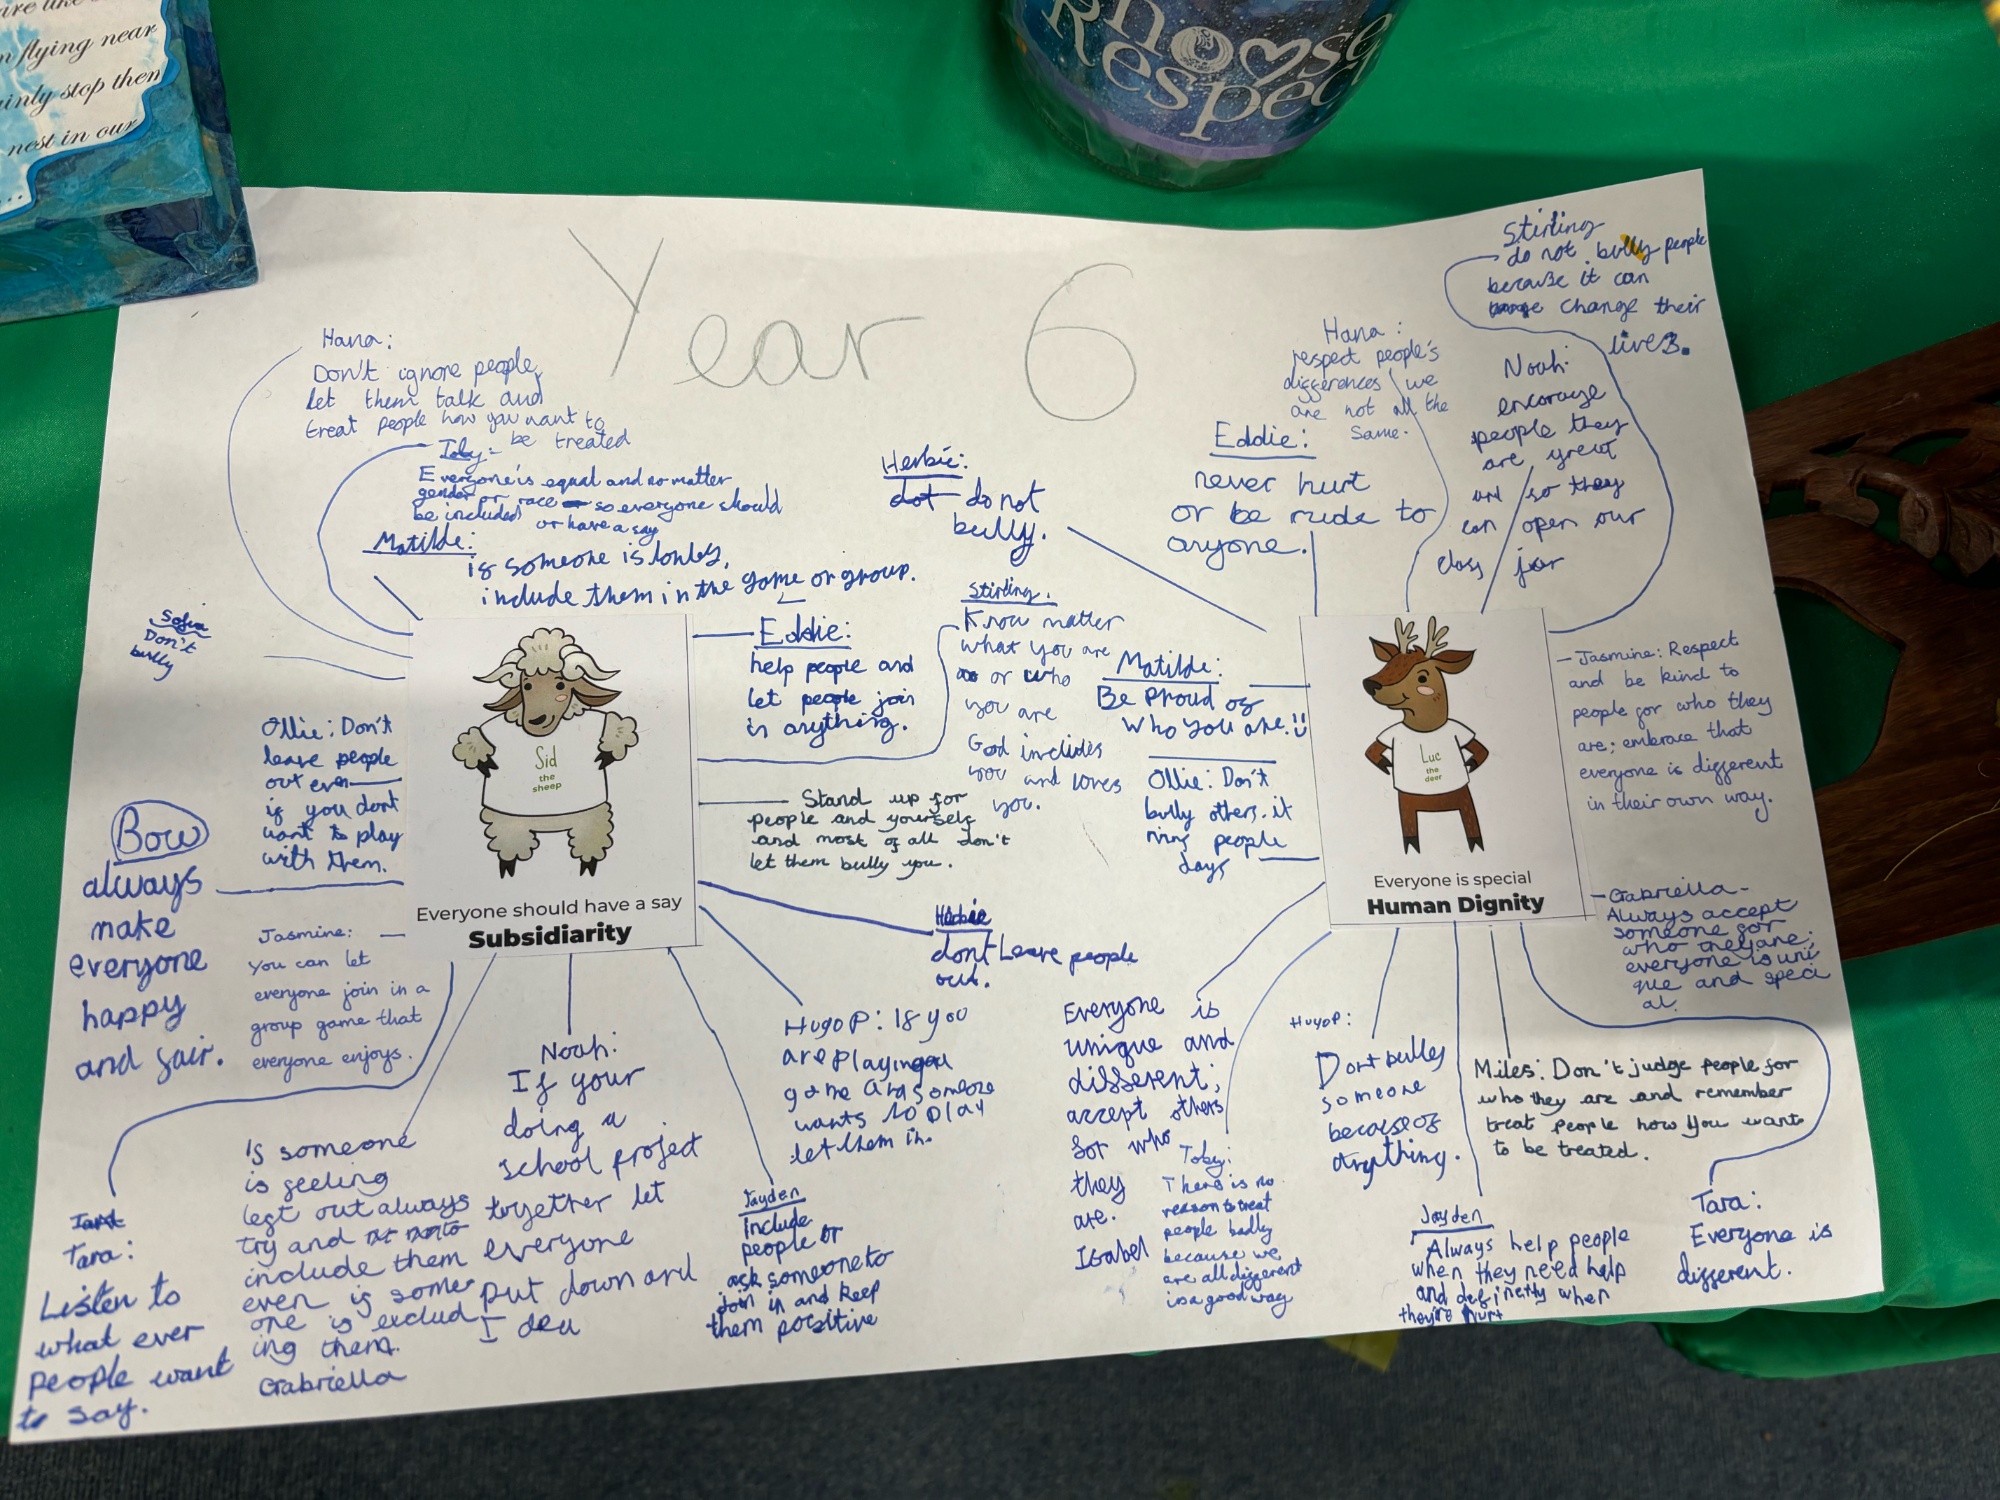 are like
n flying near
ainly stop them
nest in our
...
Choose
Respec
Year 6
Hana:
Don't ignore people,
let them talk and
treat people how you want to
be treated
Toby:
Everyone is equal and no matter
gender or race so everyone should
be included or have a say
Matilde:
is someone is lonley,
include them in the game or group.
Sofia
Don't
bully
Ollie: Don't
leave people
out even
if you dont
want to play
with them.
Bow
always
make
everyone
happy
and fair.
Jasmine:
you can let
everyone join in a
group game that
everyone enjoys.
Sid
the
sheep
Everyone should have a say
Subsidiarity
Eddie:
help people and
let people join
in anything.
Stirling.
Know matter
what you are
or who
you are
God includes
you and loves
you.
Stand up for
people and yourself
and most of all don't
let them bully you.
Herbie
dont Leave people
out.
Hugo P: If you
are playing a
game and someone
wants to play
let them in.
Jayden
Include
people or
ask someone to
join in and keep
them positive
Noah:
If your
doing a
school project
together let
everyone
put down an
I dea
If someone
is feeling
left out always
try and
include them
even if some
one is exclud
ing them.
Gabriella
Tara:
Listen to
what ever
people want
to say.
Herbie:
do not
bully.
Eddie:
never hurt
or be rude to
anyone.
Hana:
respect people's
differences we
are not all the
same.
Stirling
do not bully people
because it can
change their
lives.
Noah:
encorage
people they
are great
and so they
can open our
class jar
Matilde:
Be Proud of
Who You are!!
Ollie: Don't
bully others. it
ruins people
days
Luc
the
deer
Everyone is special
Human Dignity
Jasmine: Respect
and be kind to
people for who they
are; embrace that
everyone is different
in their own way.
Gabriella-
Always accept
someone for
who they are;
everyone is uni
que and speci
al.
Everyone is
unique and
different;
accept others
for who
they
are.
Isabel
Toby:
There is no
reason to treat
people badly
because we
are all different
in a good way
Hugo P:
Dont bulley
someone
because of
anything.
Miles: Don't judge people for
who they are and remember
treat people how you want
to be treated.
Jayden
Always help people
when they need help
and definetly when
they're hurt
Tara:
Everyone is
different.